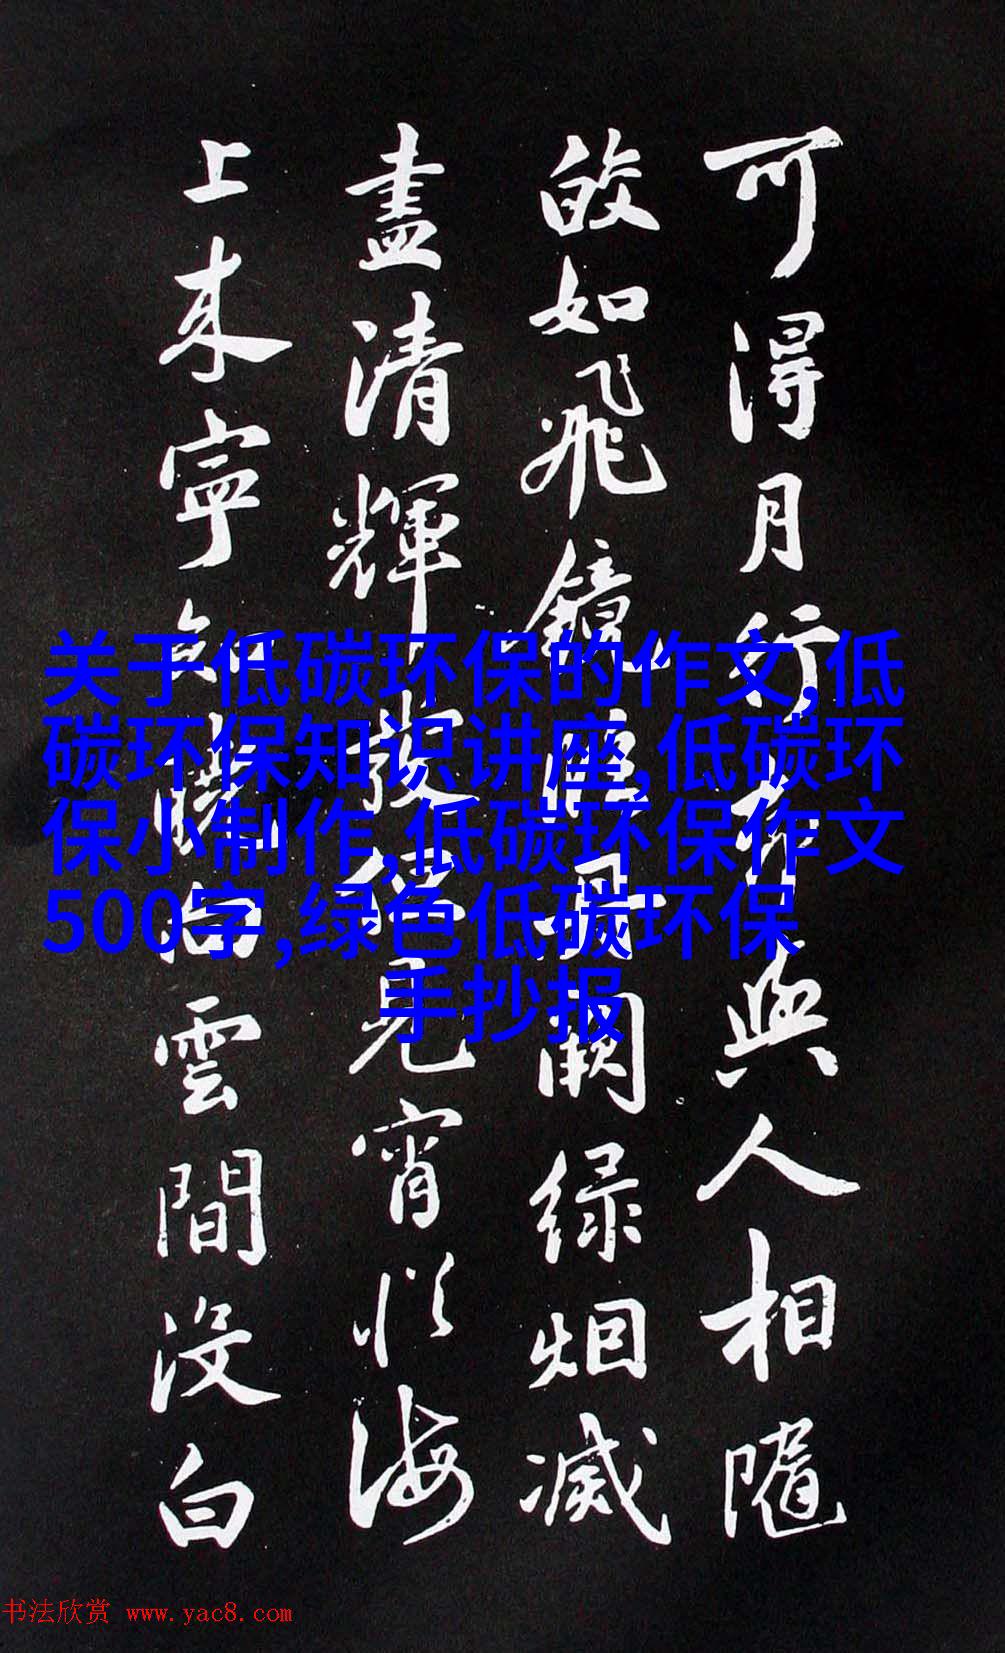 可得月行却與人相隨
皎如飛鏡臨丹闕緑烟滅
盡清輝發但見宵從海
上來寧知曉向雲間没白
关于低碳环保的作文,低
碳环保知识讲座,低碳环
保小制作,低碳环保作文
500字,绿色低碳环保
手抄报
书法欣赏 www.yac8.com